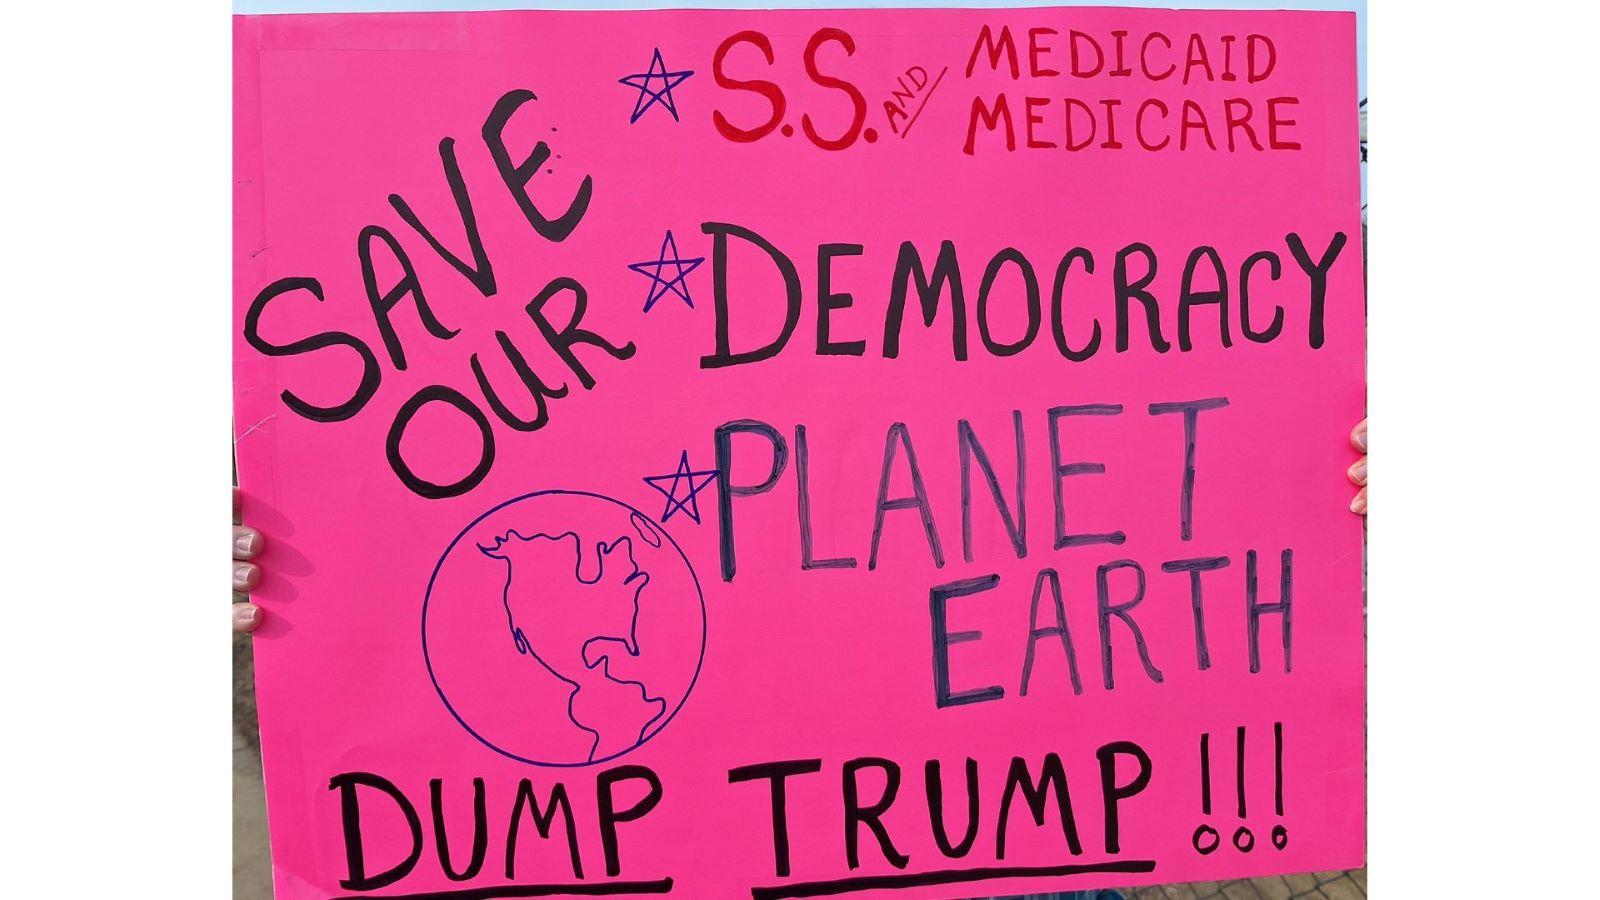 SAVE
OUR
S.S. AND MEDICAID
MEDICARE
DEMOCRACY
PLANET
EARTH
DUMP TRUMP!!!